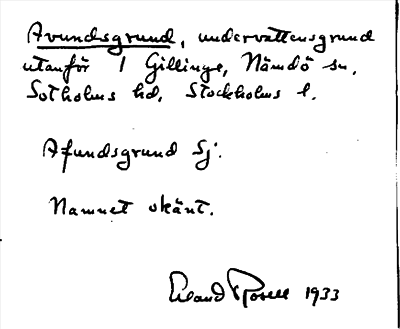 Avundsgrund, undervattensgrund
utanför I Gillinge, Nämdö sn,
Sotholms hd, Stockholms l.
Afundsgrund Sj.
Namnet okänt.
Erland Rosell 1933